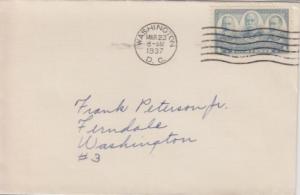 WASHINGTON
MAR 23
1937
D.C.
Frank Peterson jr.
Ferndale
Washington
#3